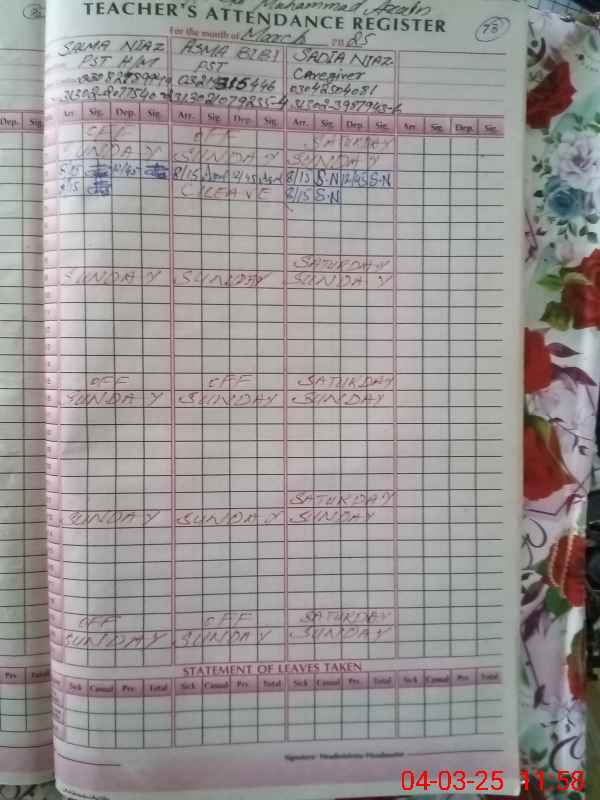 Muhammad
TEACHER'S ATTENDANCE REGISTER
For the month of March 2025
SALMA NIAZ ASMA BIBI SADIA NIAZ
PST H/M PST Caregiver
03042504081
Arr. Sig. Dep. Sig. Arr. Sig. Dep. Sig. Arr. Sig. Dep. Sig. Arr. Sig. Dep. Sig.
OFF OFF SATURDAY
SUNDAY SUNDAY SUNDAY
8/15 12/45 8/15 12/45 8/15 S.N 12/45 S.N
8/15 C.LEAVE 8/15 S.N
SATURDAY
SUNDAY SUNDAY SUNDAY
OFF OFF SATURDAY
SUNDAY SUNDAY SUNDAY
SATURDAY
SUNDAY SUNDAY SUNDAY
OFF OFF SATURDAY
SUNDAY SUNDAY SUNDAY
STATEMENT OF LEAVES TAKEN
Prv. Total Sick Casual Prv. Total Sick Casual Prv. Total Sick Casual Prv. Total Sick Casual Prv. Total
Signature Headmistress/Headmaster
04-03-25 11:58